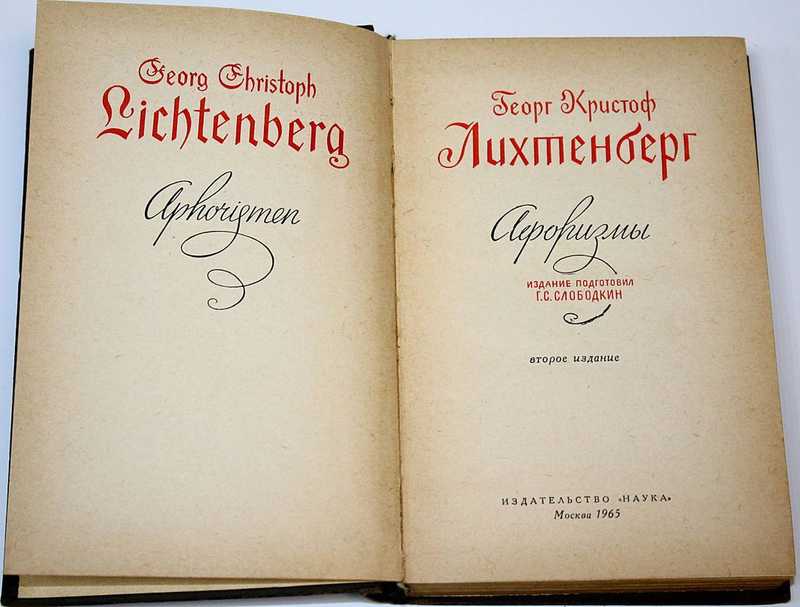 Georg Christoph
Lichtenberg
Aphorismen
Георг Кристоф
Лихтенберг
Афоризмы
ИЗДАНИЕ ПОДГОТОВИЛ
Г.С.СЛОБОДКИН
второе издание
ИЗДАТЕЛЬСТВО «НАУКА»
Москва 1965